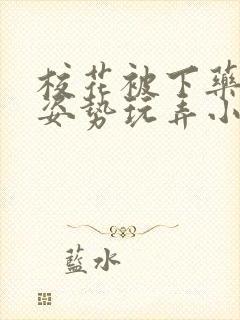 校花被下藥
姿勢玩弄小
藍水